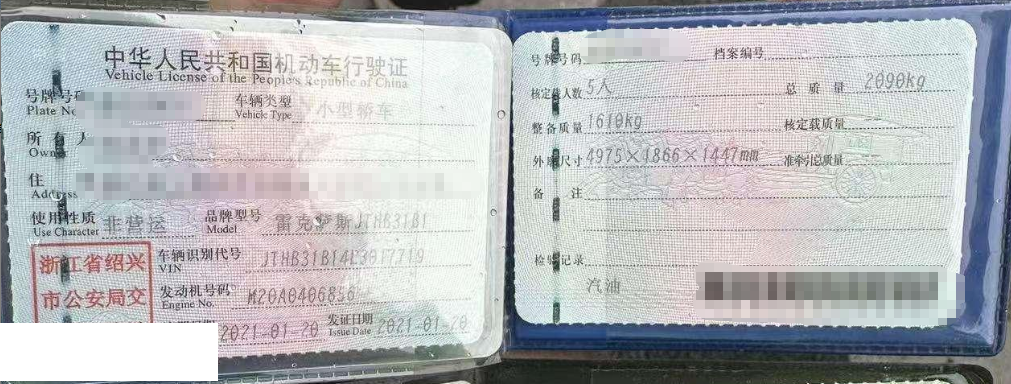 中华人民共和国机动车行驶证
Vehicle License of the People's Republic of China
号牌号码
Plate No.
车辆类型 小型轿车
Vehicle Type
所有人
Owner
住
Address
使用性质 非营运
Use Character
品牌型号 雷克萨斯JTHB31B1
Model
浙江省绍兴
市公安局交
车辆识别代号
VIN
发动机号码 M20A0406856
Engine No.
2021-01-20
发证日期 2021-01-20
Issue Date
号牌号码
档案编号
核定载人数 5人
总质量 2090kg
整备质量 1610kg
核定载质量
外廓尺寸 4975×1866×1447mm
准牵引总质量
备注
检验记录
汽油